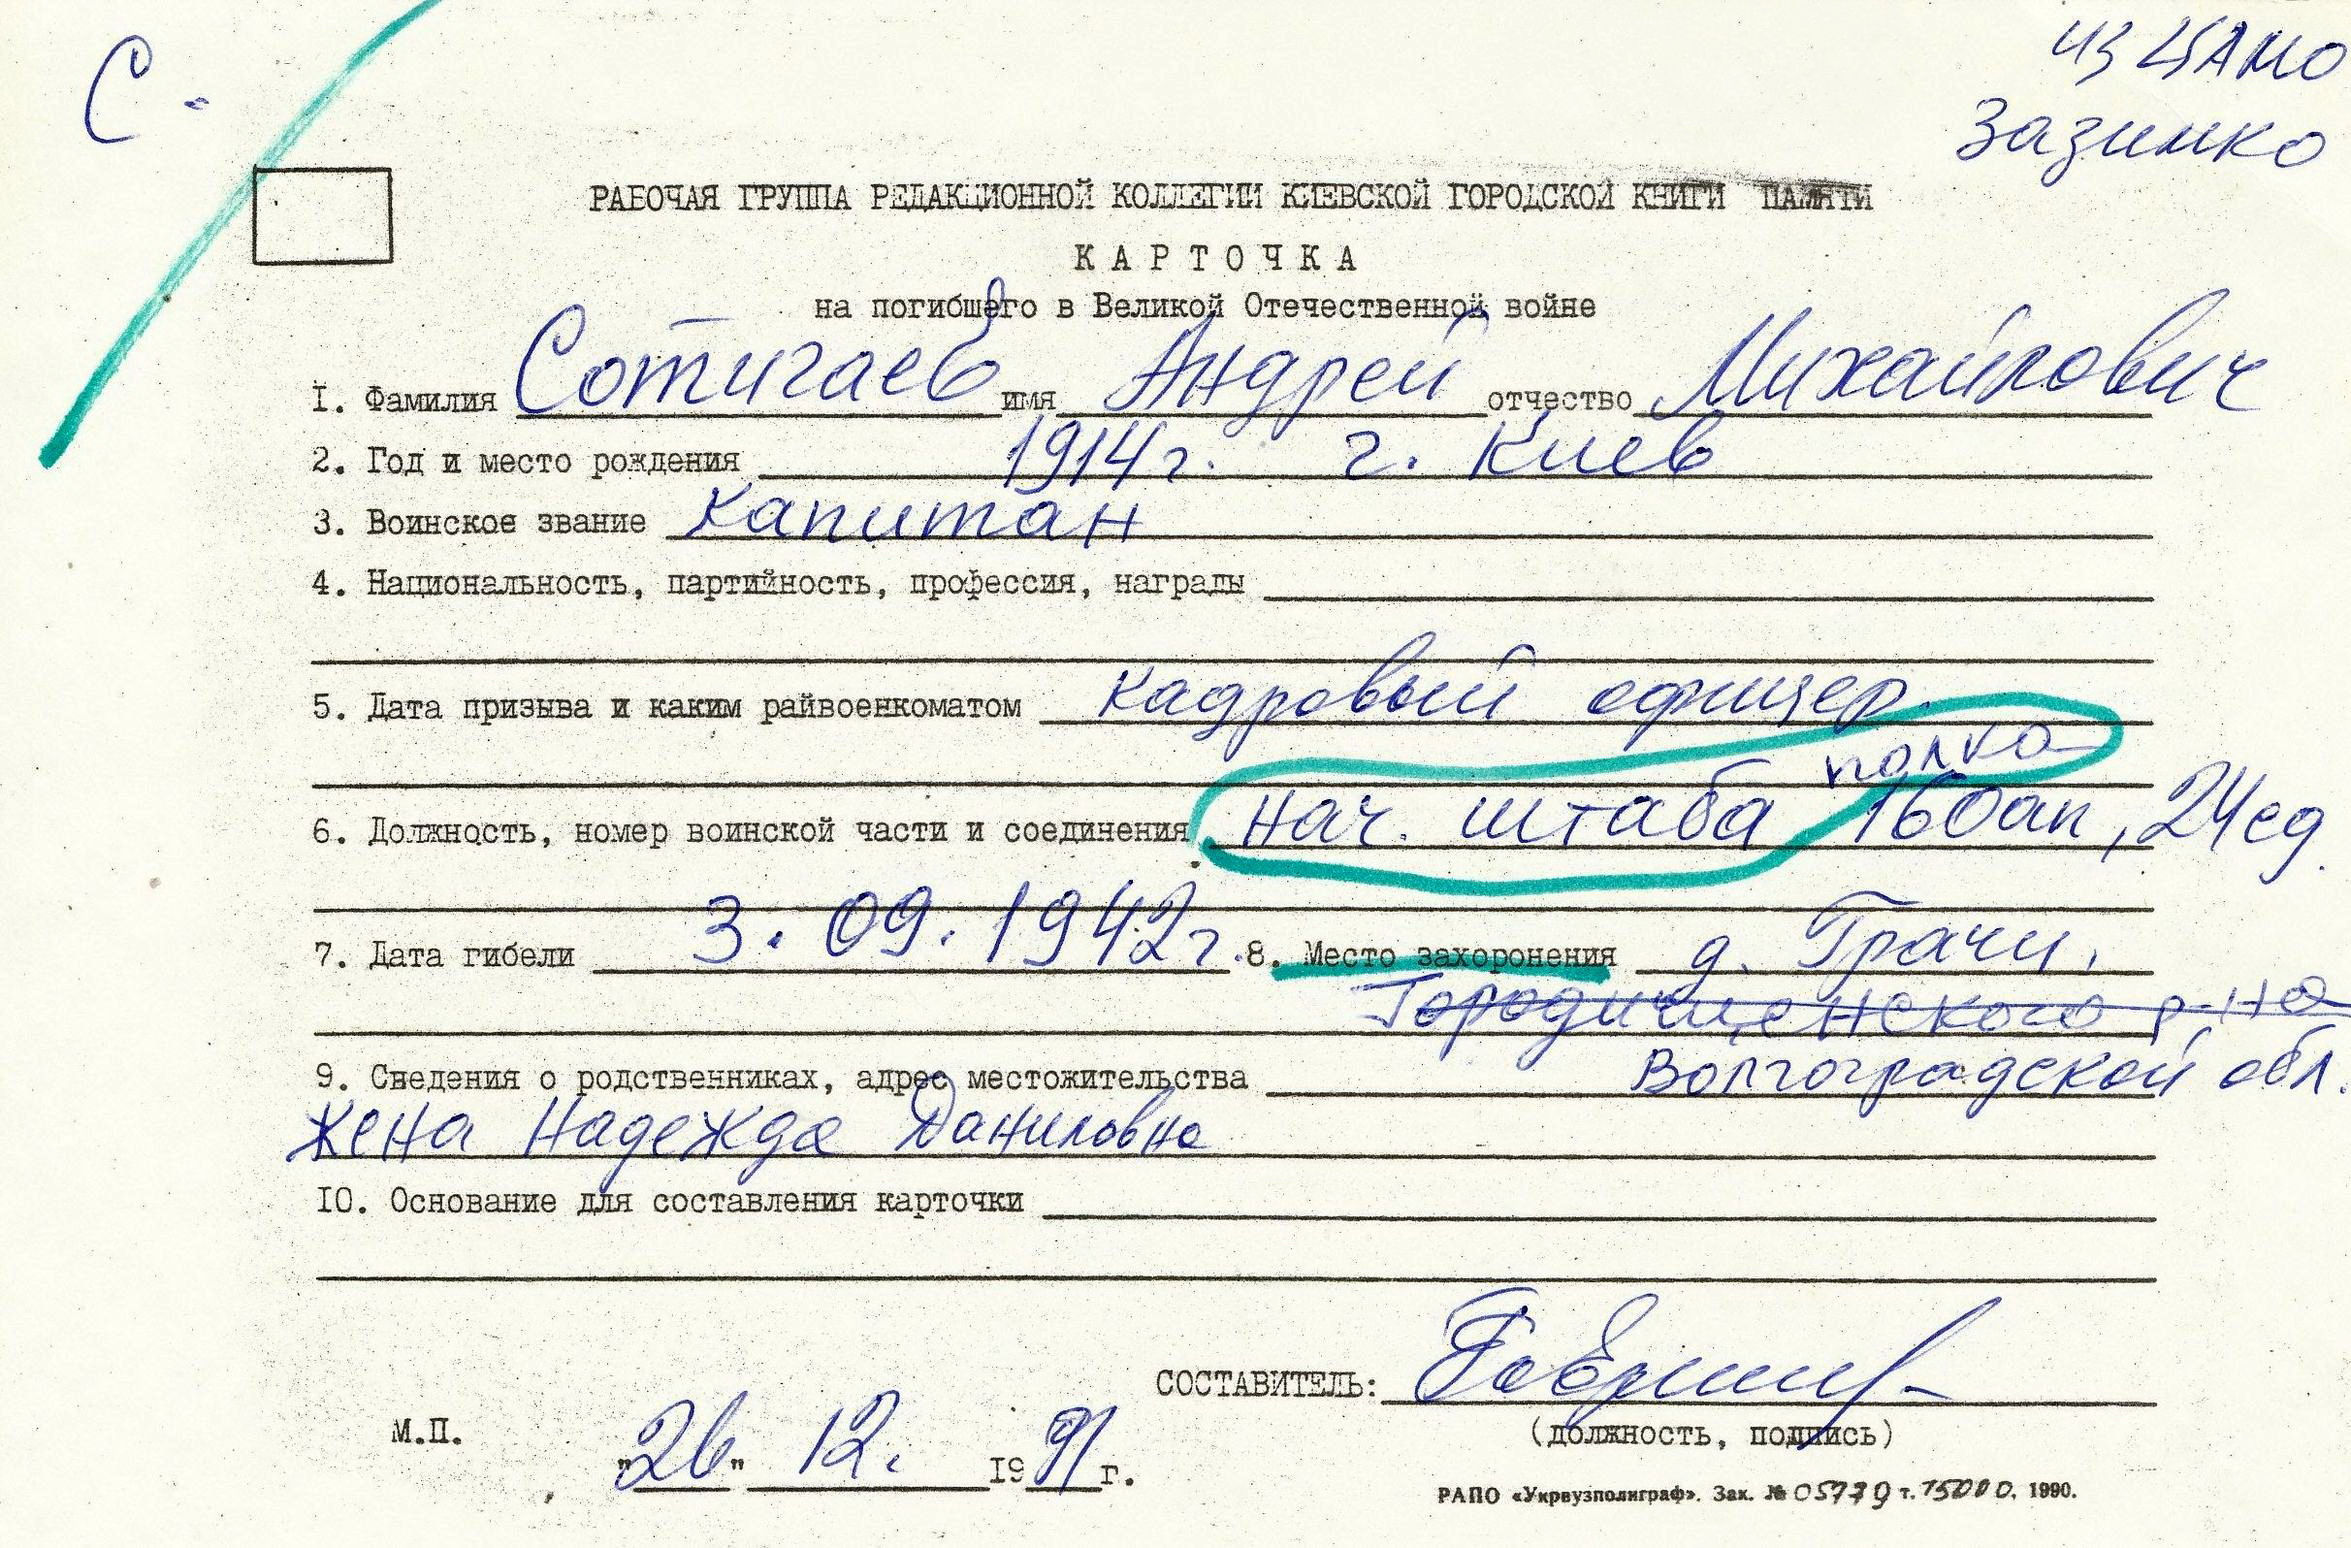 С.
из ЦАМО
Зазимко
РАБОЧАЯ ГРУППА РЕДАКЦИОННОЙ КОЛЛЕГИИ КИЕВСКОЙ ГОРОДСКОЙ КНИГИ ПАМЯТИ
КАРТОЧКА
на погибшего в Великой Отечественной войне
I. Фамилия Сотигаев имя Андрей отчество Михайлович
2. Год и место рождения 1914г. г. Киев
3. Воинское звание капитан
4. Национальность, партийность, профессия, награды
5. Дата призыва и каким райвоенкоматом кадровый офицер.
полка
6. Должность, номер воинской части и соединения нач. штаба 160ап, 24сд.
7. Дата гибели 3.09.1942г. 8. Место захоронения д. Грачи,
Городищенского р-на
9. Сведения о родственниках, адрес местожительства Волгоградской обл.
жена Надежда Даниловна
IO. Основание для составления карточки
СОСТАВИТЕЛЬ:
(должность, подпись)
М.П. "26" 12. 1991г.
РАПО «Укрвузполиграф». Зак. № 05779 т. 15000. 1990.